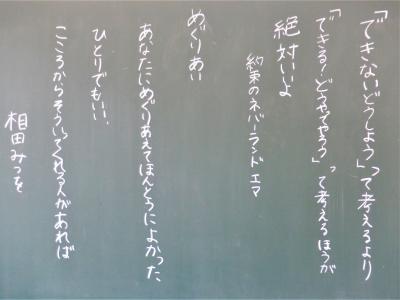 「できないどうしよう」って考えるより
「できる！どうやってやろう」って考えるほうが
絶対いいよ
約束のネバーランド エマ
めぐりあい
あなたにめぐりあえてほんとうによかった
ひとりでもいい、
こころからそういってくれる人があれば
相田みつを